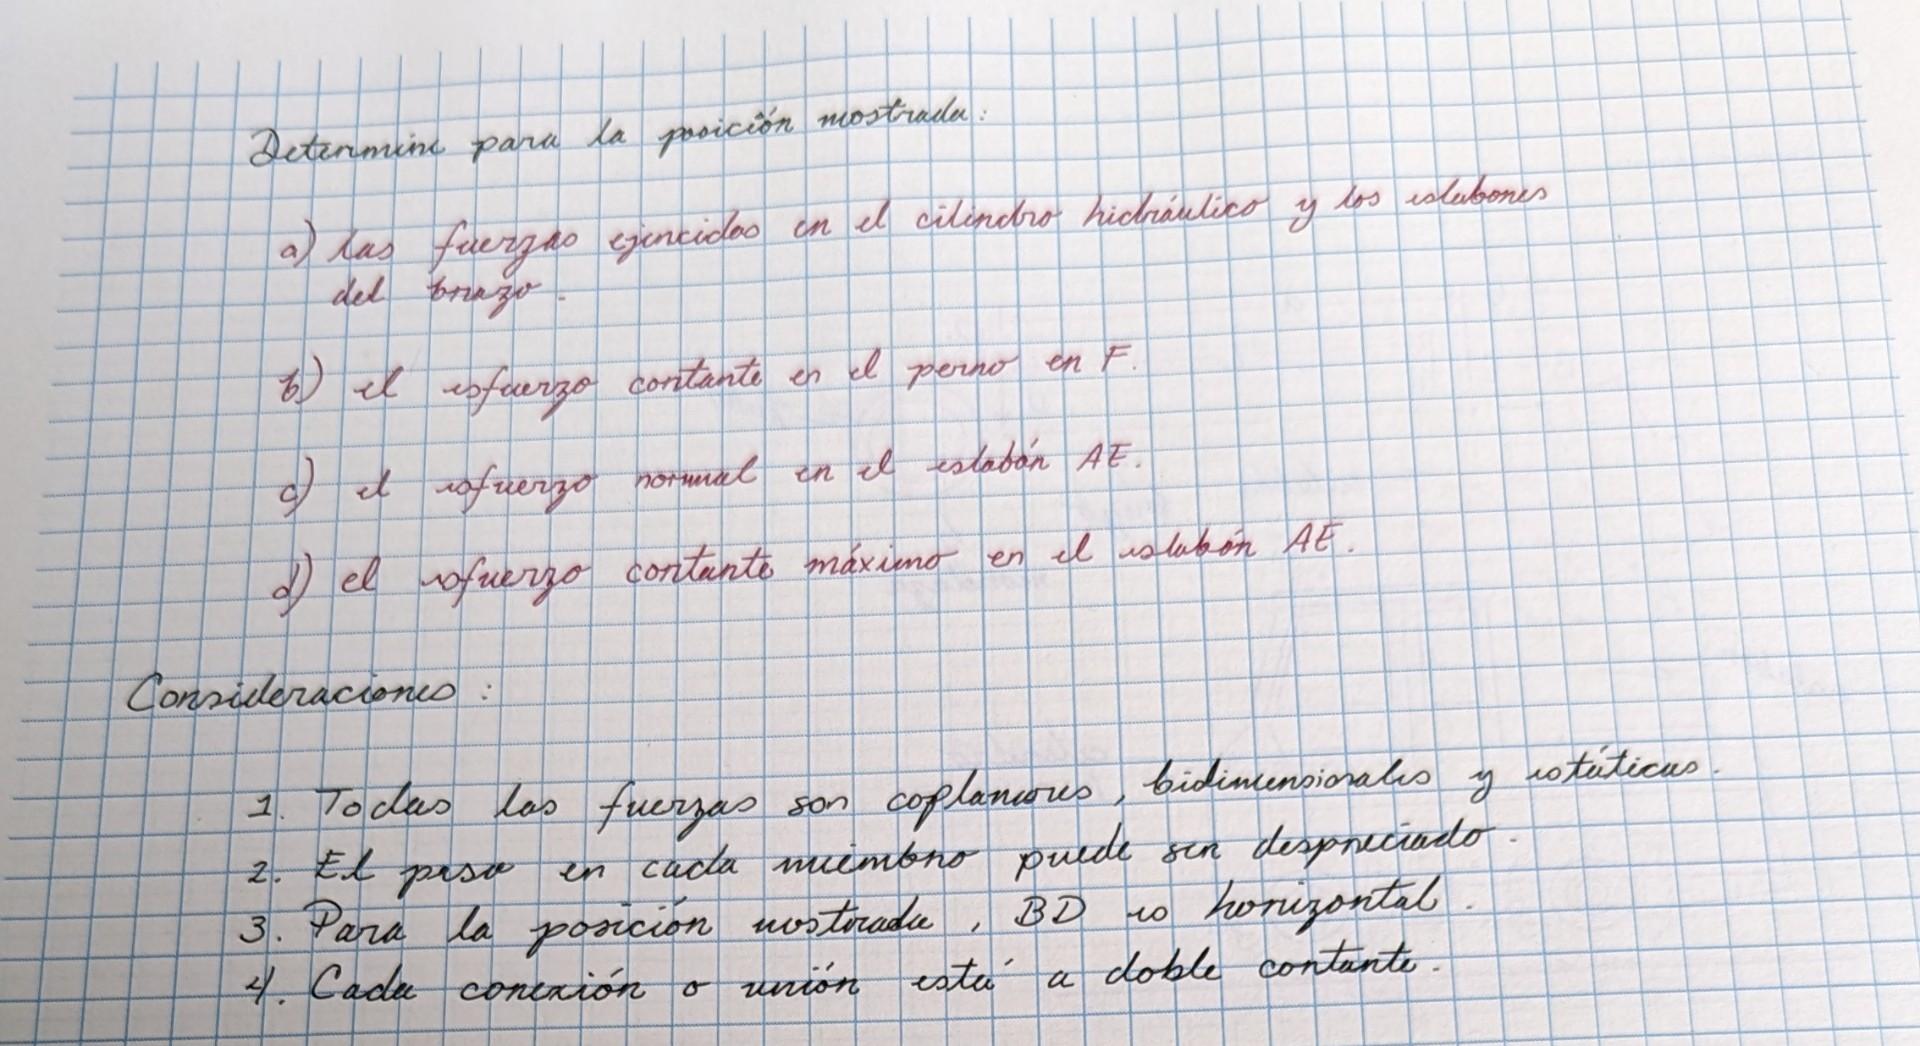 Determine para la posición mostrada:
a) las fuerzas ejercidas en el cilindro hidráulico y los eslabones
del brazo.
b) el esfuerzo cortante en el perno en F.
c) el esfuerzo normal en el eslabón AE.
d) el esfuerzo cortante máximo en el eslabón AE.
Consideraciones:
1. Todas las fuerzas son coplanares, bidimensionales y estáticas.
2. El peso en cada miembro puede ser despreciado.
3. Para la posición mostrada, BD es horizontal.
4. Cada conexión o unión está a doble cortante.